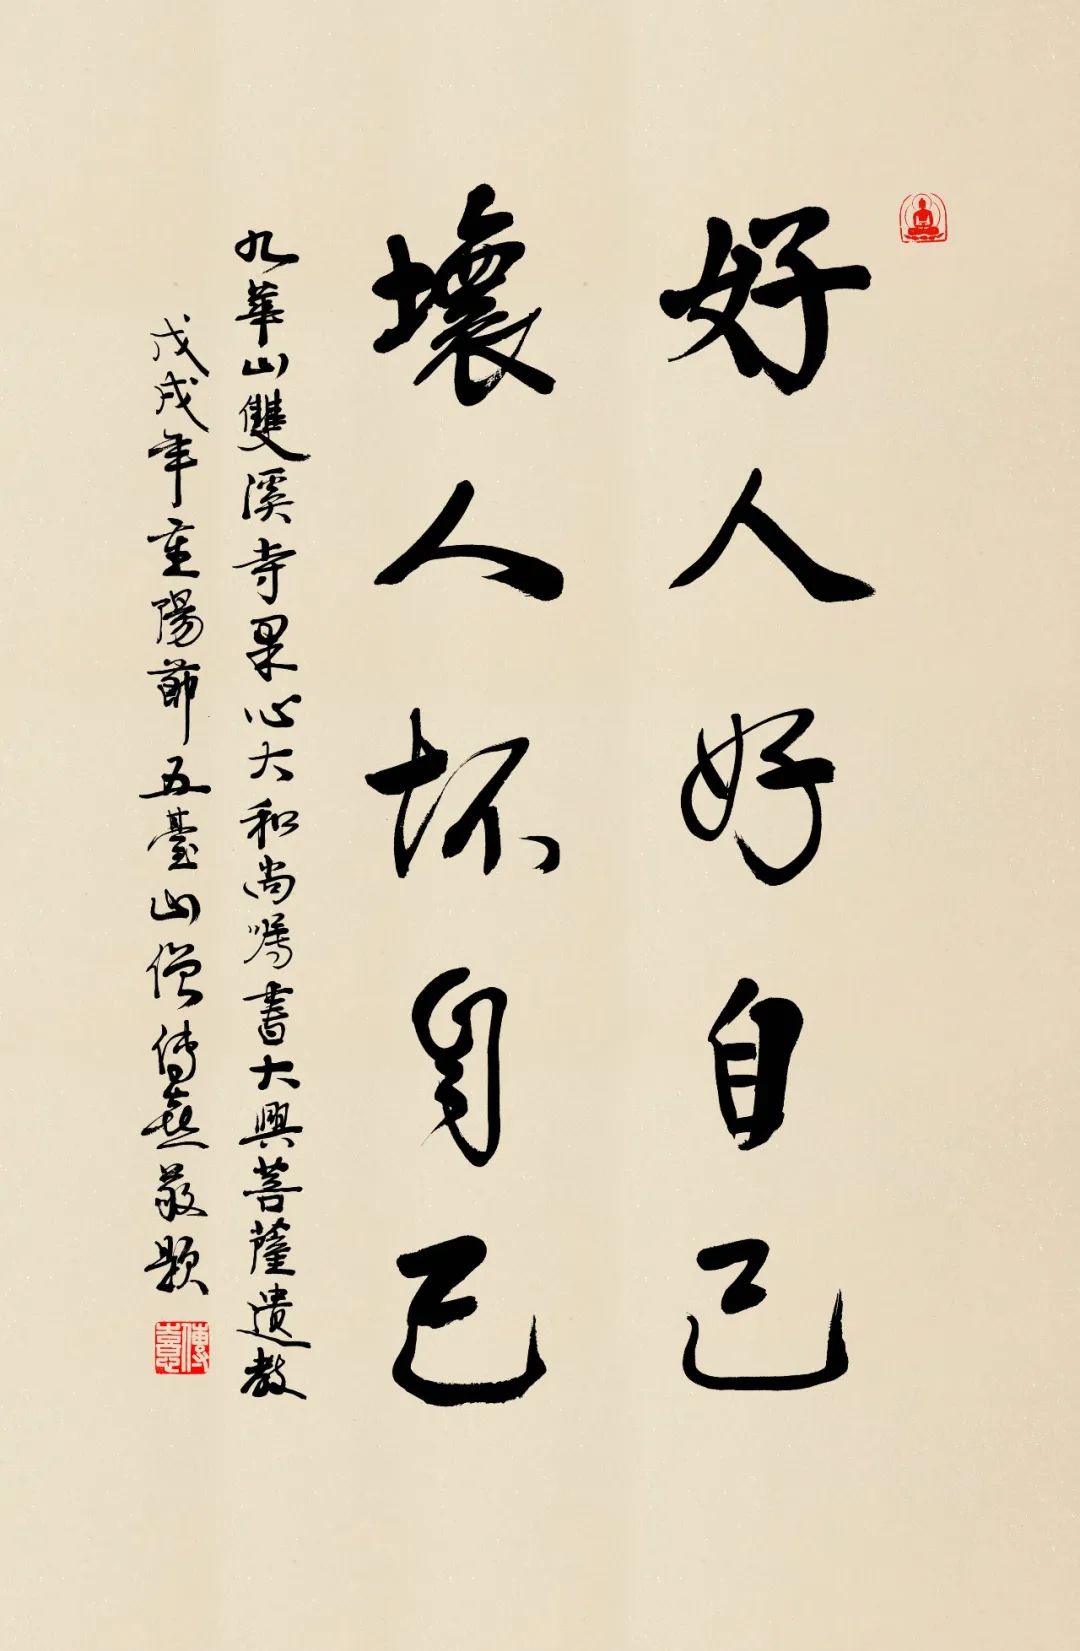 好人好自己
壞人坏自己
九華山雙溪寺果心大和尚囑書大興菩薩遺教
戊戌年重陽節五臺山僧傳熹敬題
傳熹